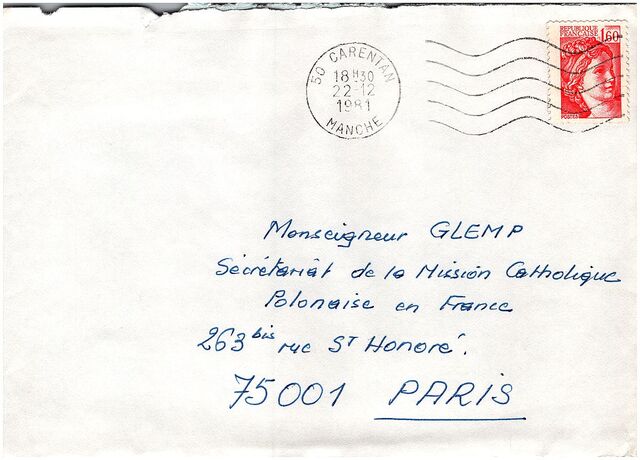 50 CARENTAN
18H30
22-12
1981
MANCHE
REPUBLIQUE
FRANCAISE
1,60
POSTES
Monseigneur GLEMP
Sécrétariat de la Mission Catholique
Polonaise en France
263 bis rue ST Honoré.
75001 PARIS